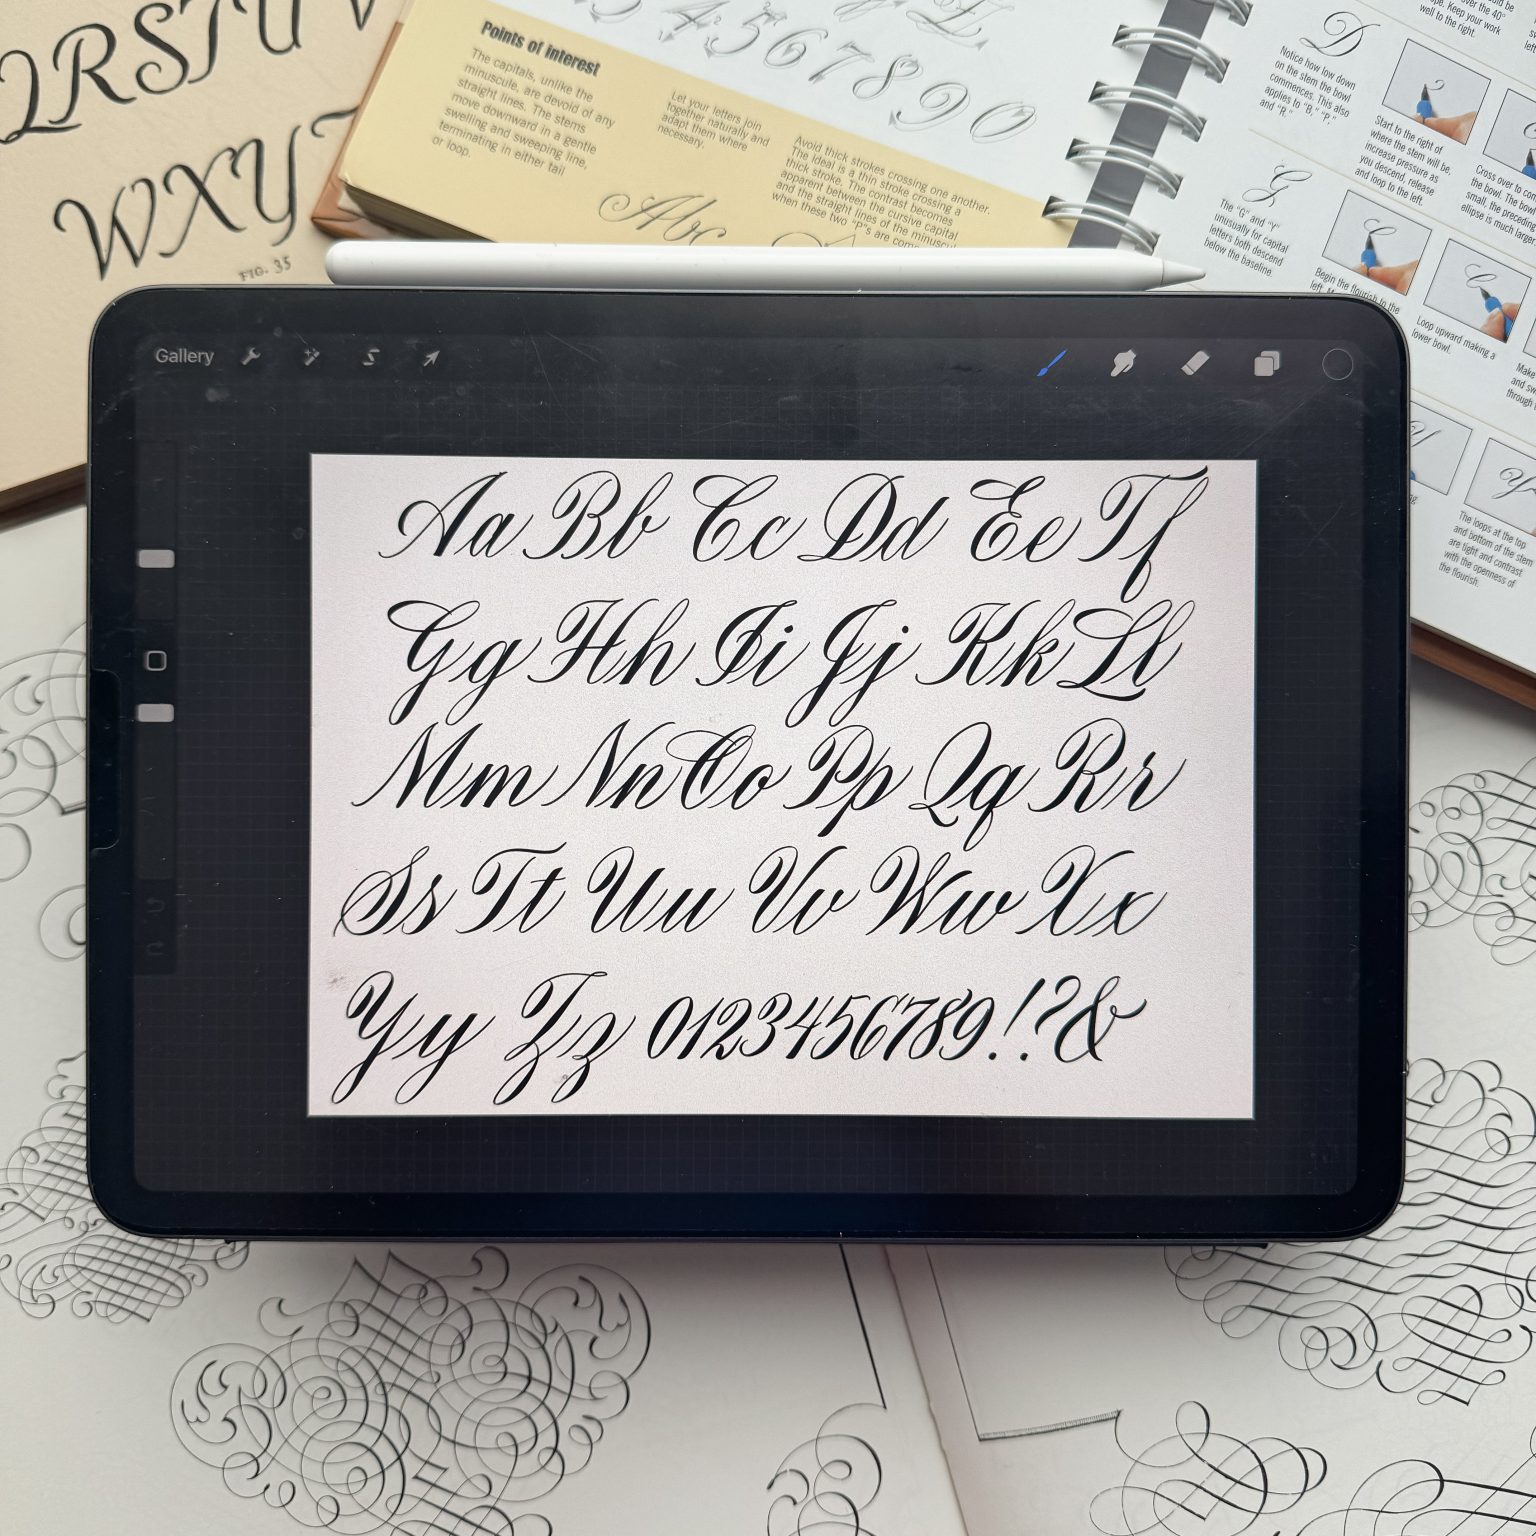 QRSTUV
WXY
FIG. 35
4567890
Points of Interest
The capitals, unlike the
minuscule, are devoid of any
straight lines. The stems
move downward in a gentle
swelling and sweeping line,
terminating in either tail
or loop.
Let your letters join
together naturally and
adapt them where
necessary.
Avoid thick strokes crossing one another.
The ideal is a thin stroke crossing a
thick stroke. The contrast becoming
apparent between the cursive capital
and the straight lines of the
when these two "P"s are
Abc
over the 40°
Keep your work
well to the right.
D
Notice how low down
on the stem the bowl
commences. This also
applies to "B," "P,"
and "R."
Start to the right of
where the stem will be,
increase pressure as
you descend, release
and loop to the left.
Cross over to
the bowl. The
small, the preceding
ellipse is much
G
The "G" and "Y"
unusually for capital
letters both descend
below the baseline.
Begin the flourish to the
left.
Loop upward making a
lower bowl.
Make
and
through
The loops at the top
and bottom of the stem
are tight and contrast
with the openness of
the flourish.
Gallery
Aa Bb Cc Dd Ee Ff
Gg Hh Ii Jj Kk Ll
Mm Nn Oo Pp Qq Rr
Ss Tt Uu Vv Ww Xx
Yy Zz 0123456789!?&